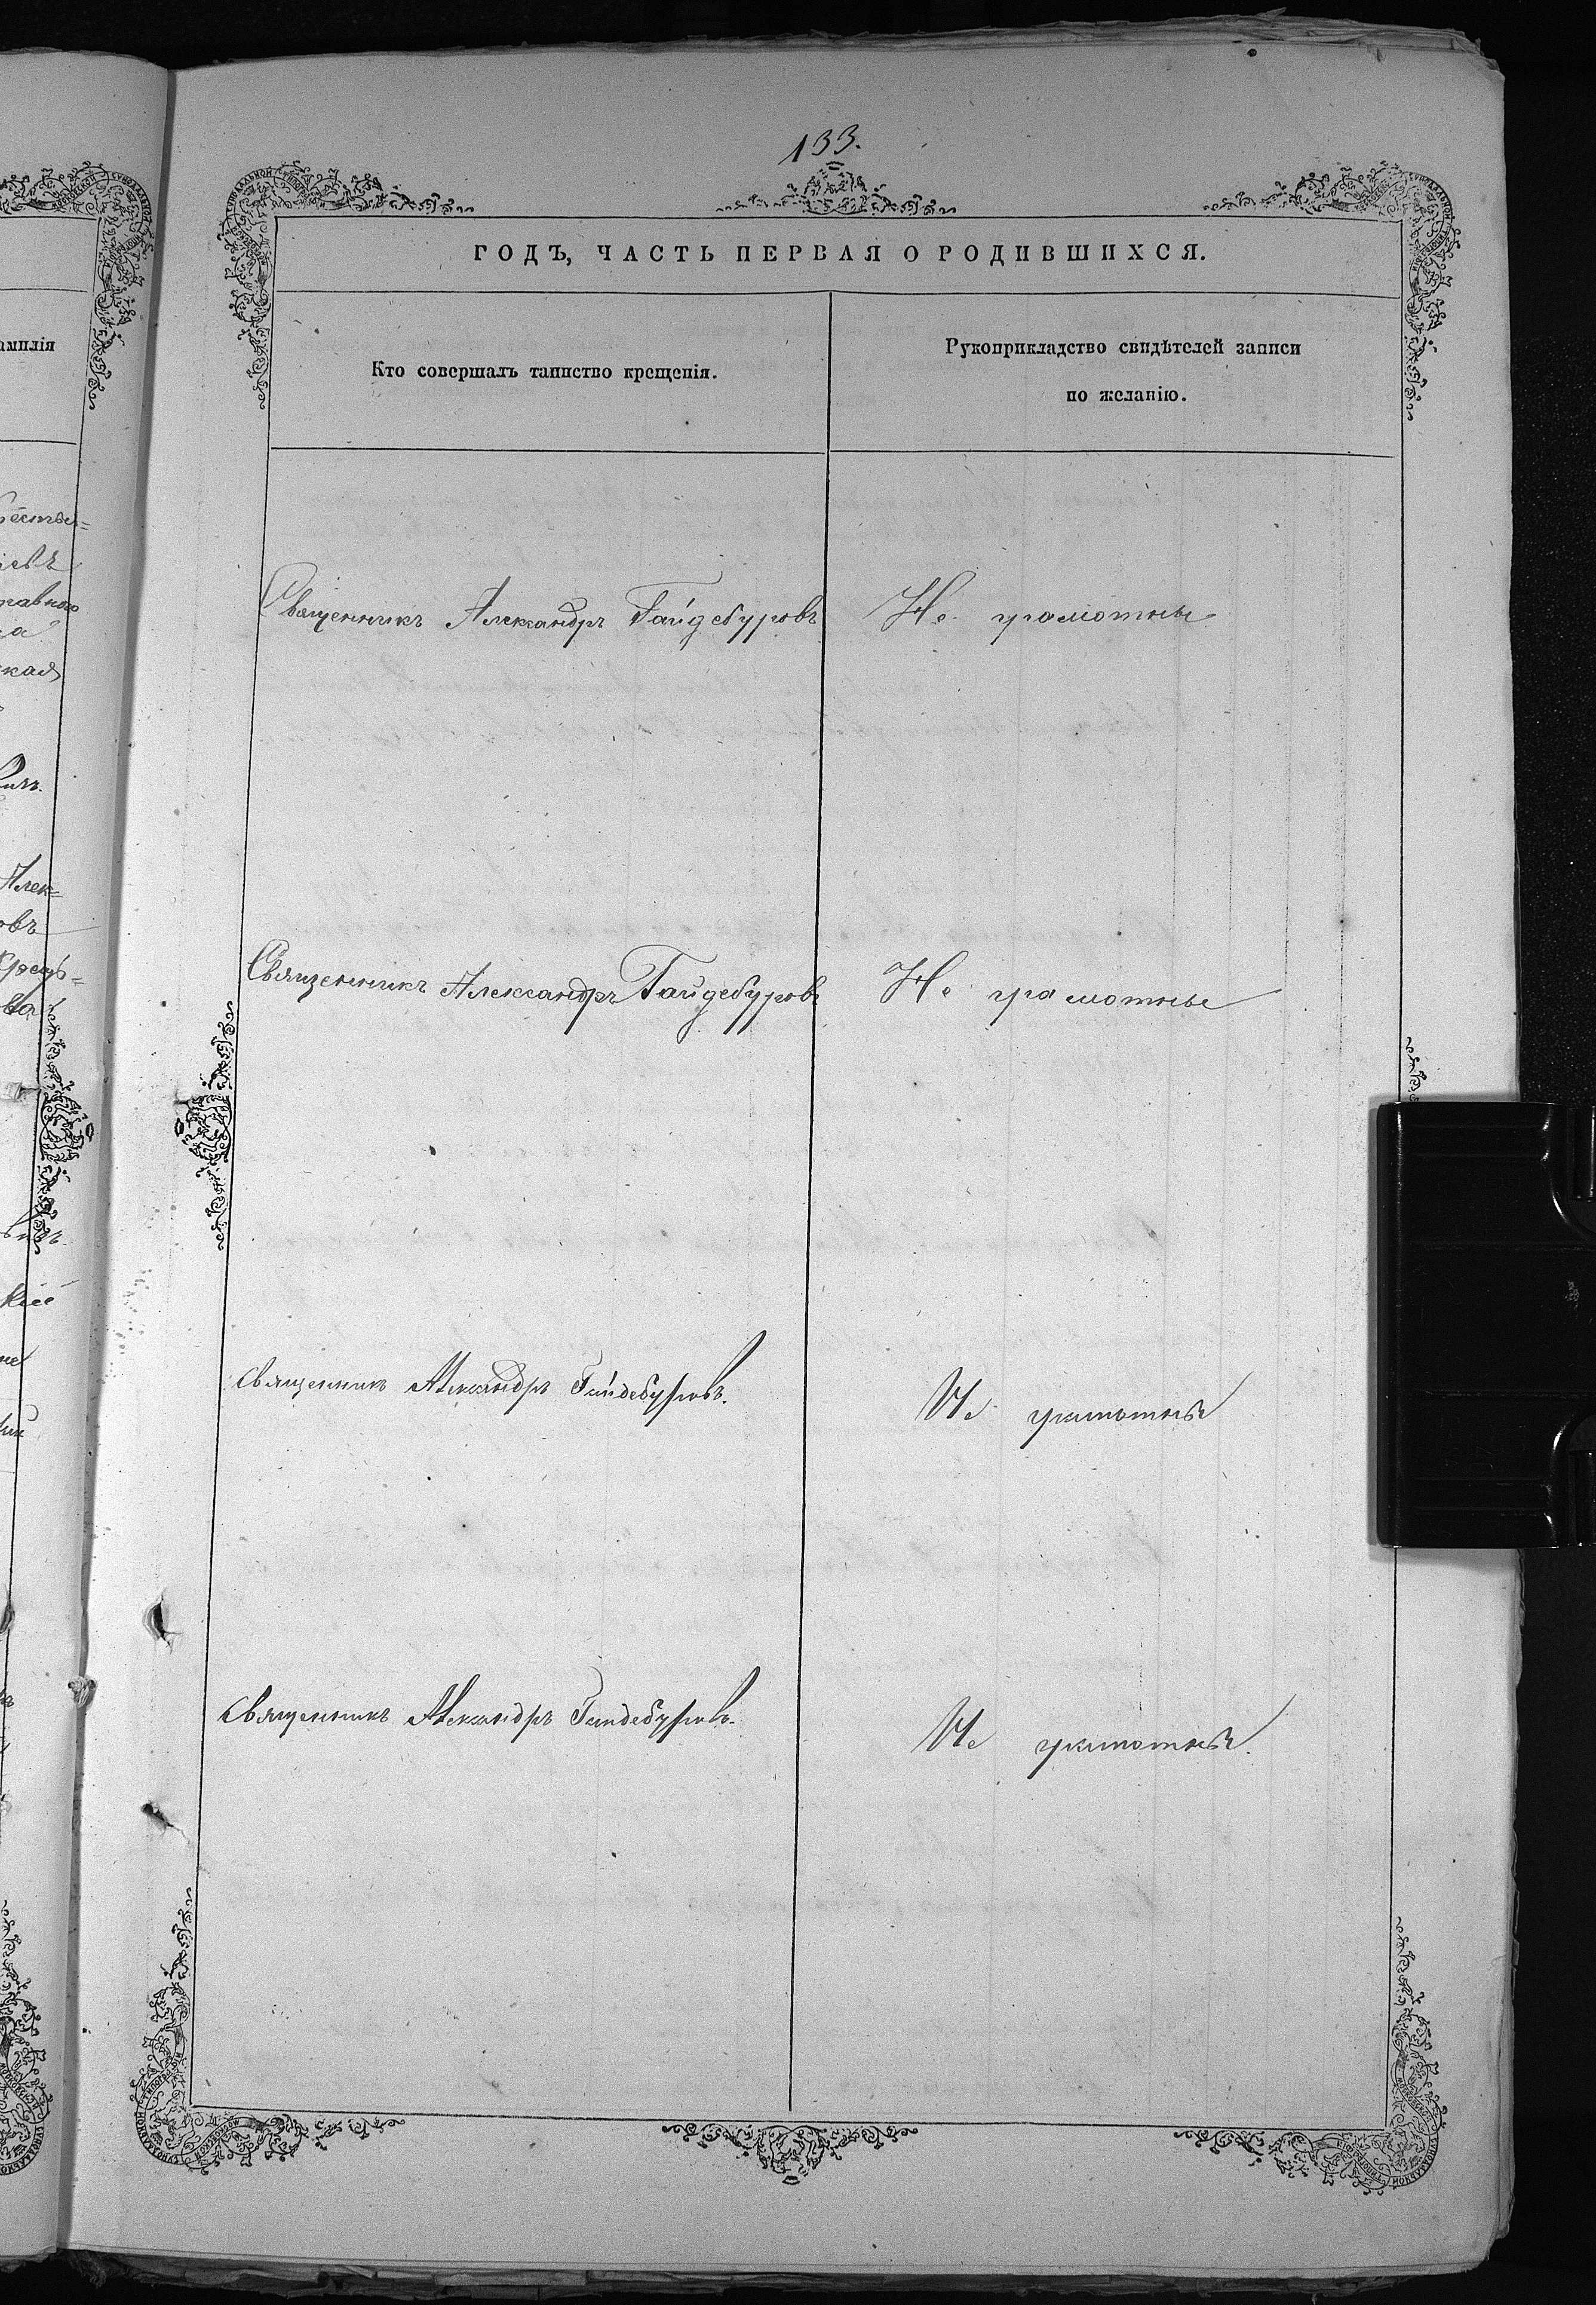 133.
ГОДЪ, ЧАСТЬ ПЕРВАЯ О РОДИВШИХСЯ.
Кто совершалъ таинство крещенія.
Рукоприкладство свидѣтелей записи
по желанію.
Священникъ Александръ Гайдебуровъ
Не грамотны
Священникъ Александръ Гайдебуровъ
Не грамотны
Священникъ Александръ Гайдебуровъ.
Не грамотны
Священникъ Александръ Гайдебуровъ.
Не грамотны.
амилія
овъ
ская
Алек=